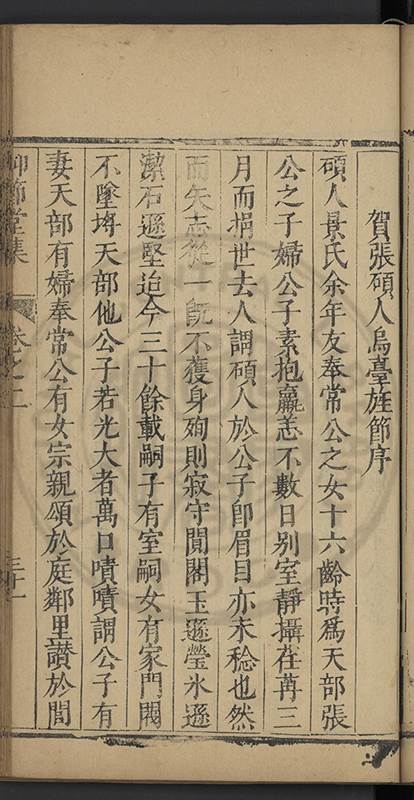 賀張碩人烏臺旌節序
碩人景氏余年友奉常公之女十六齡時爲天部張
公之子婦公子素抱羸恙不數日别室靜攝荏苒三
月而捐世去人謂碩人於公子卽眉目亦未稔也然
而矢志從一旣不獲身殉則寂守閨閣玉遜瑩氷遜
潔石遜堅迨今三十餘載嗣子有室嗣女有家門閥
不墜埒天部他公子若光大者萬口嘖嘖謂公子有
妻天部有婦奉常公有女宗親頌於庭鄰里讃於閭
仰節堂集
卷之二
三十一